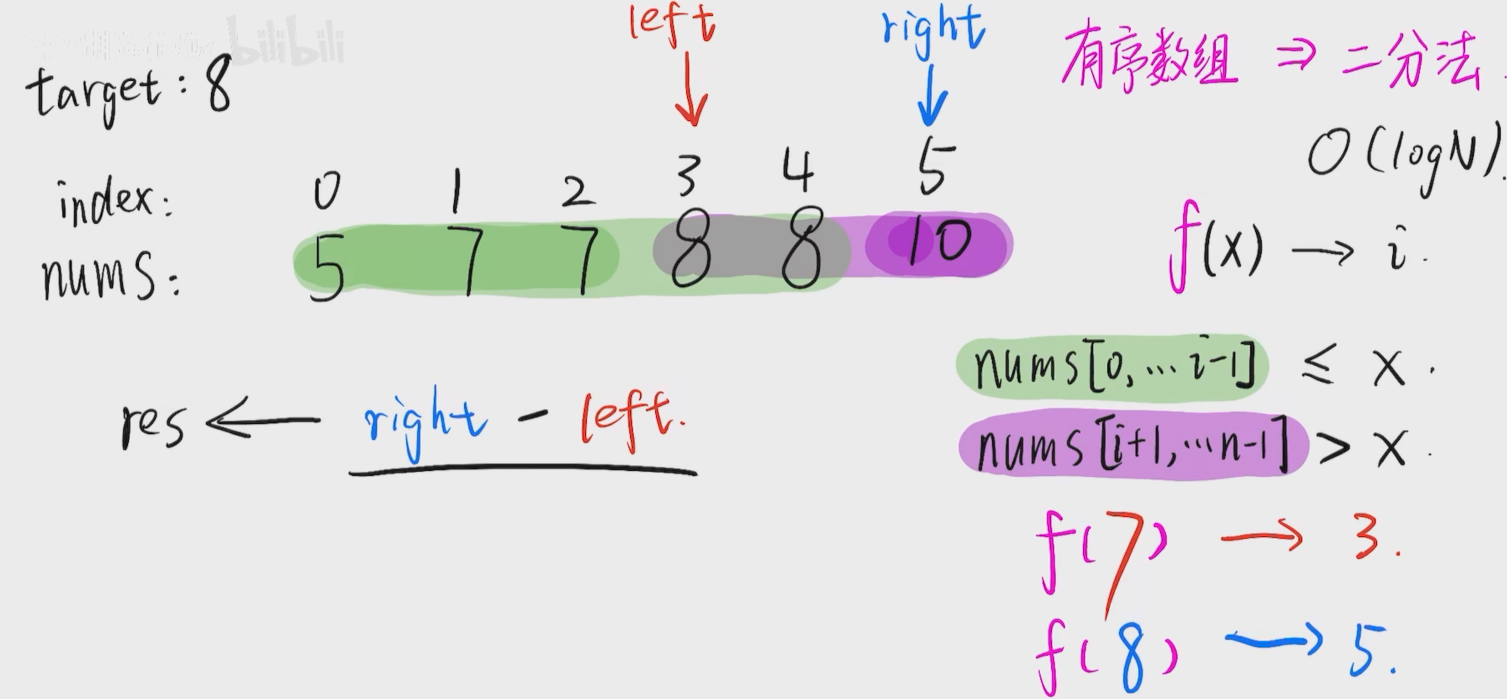 bilibili
left
right
有序数组 ⇒ 二分法.
target: 8
O(logN).
index: 0 1 2 3 4 5
nums: 5 7 7 8 8 10
f(x) → i.
nums[0,...i-1] ≤ x.
res ← right - left.
nums[i+1,...n-1] > x.
f(7) → 3.
f(8) → 5.